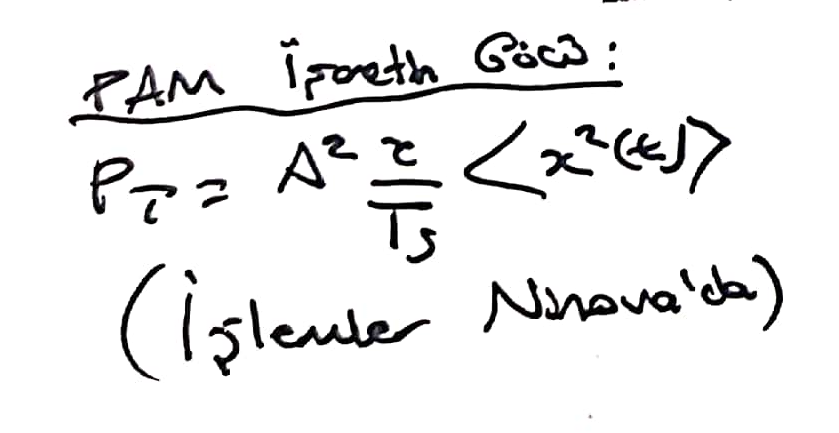 PAM İşaretin Gücü:
P_T = A² τ/Ts <x²(t)>
(İşlemler Ninova'da)